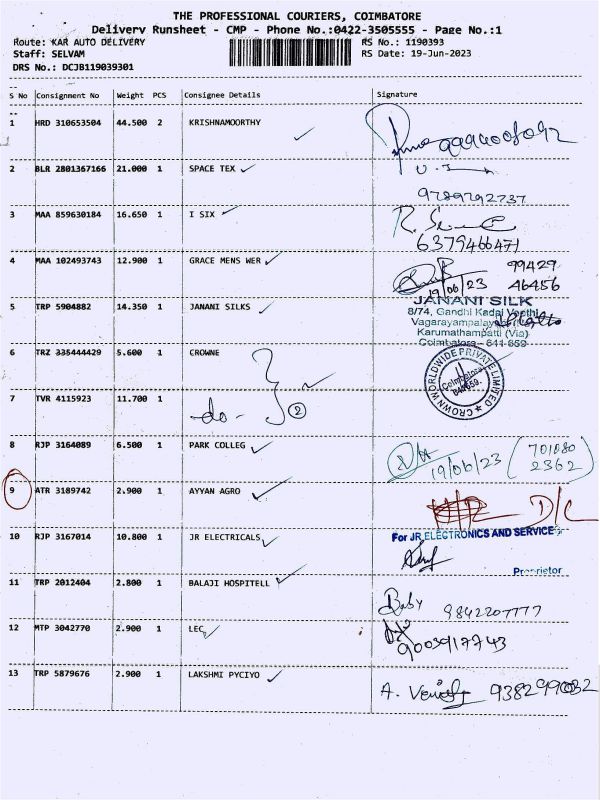 THE PROFESSIONAL COURIERS, COIMBATORE
Delivery Runsheet - CMP - Phone No.:0422-3505555 - Page No.:1
Route: KAR AUTO DELIVERY RS No.: 1190393
Staff: SELVAM RS Date: 19-Jun-2023
DRS No.: DCJB119039301
S No Consignment No Weight PCS Consignee Details Signature
1 HRD 310653504 44.500 2 KRISHNAMOORTHY
2 BLR 2801367166 21.000 1 SPACE TEX
9789792737
3 MAA 859630184 16.650 1 I SIX
6379466471
4 MAA 102493743 12.900 1 GRACE MENS WER 99429
19/06/23 46456
5 TRP 5904882 14.350 1 JANANI SILKS JANANI SILK
8/74, Gandhi Kadai Veethi
Vagarayampalayam
Karumathampatti (Via)
Coimbatore - 641 659
6 TRZ 335444429 5.600 1 CROWNE
CROWN WORLDWIDE PRIVATE LIMITED
Coimbatore
7 TVR 4115923 11.700 1 -do- 2
8 RJP 3164089 6.500 1 PARK COLLEG 19/06/23
2362
9 ATR 3189742 2.900 1 AYYAN AGRO D/C
10 RJP 3167014 10.800 1 JR ELECTRICALS For JR ELECTRONICS AND SERVICE
Proprietor
11 TRP 2012404 2.800 1 BALAJI HOSPITELL Baby 9842207777
12 MTP 3042770 2.900 1 LEC 9003917743
13 TRP 5879676 2.900 1 LAKSHMI PYCIYO A.